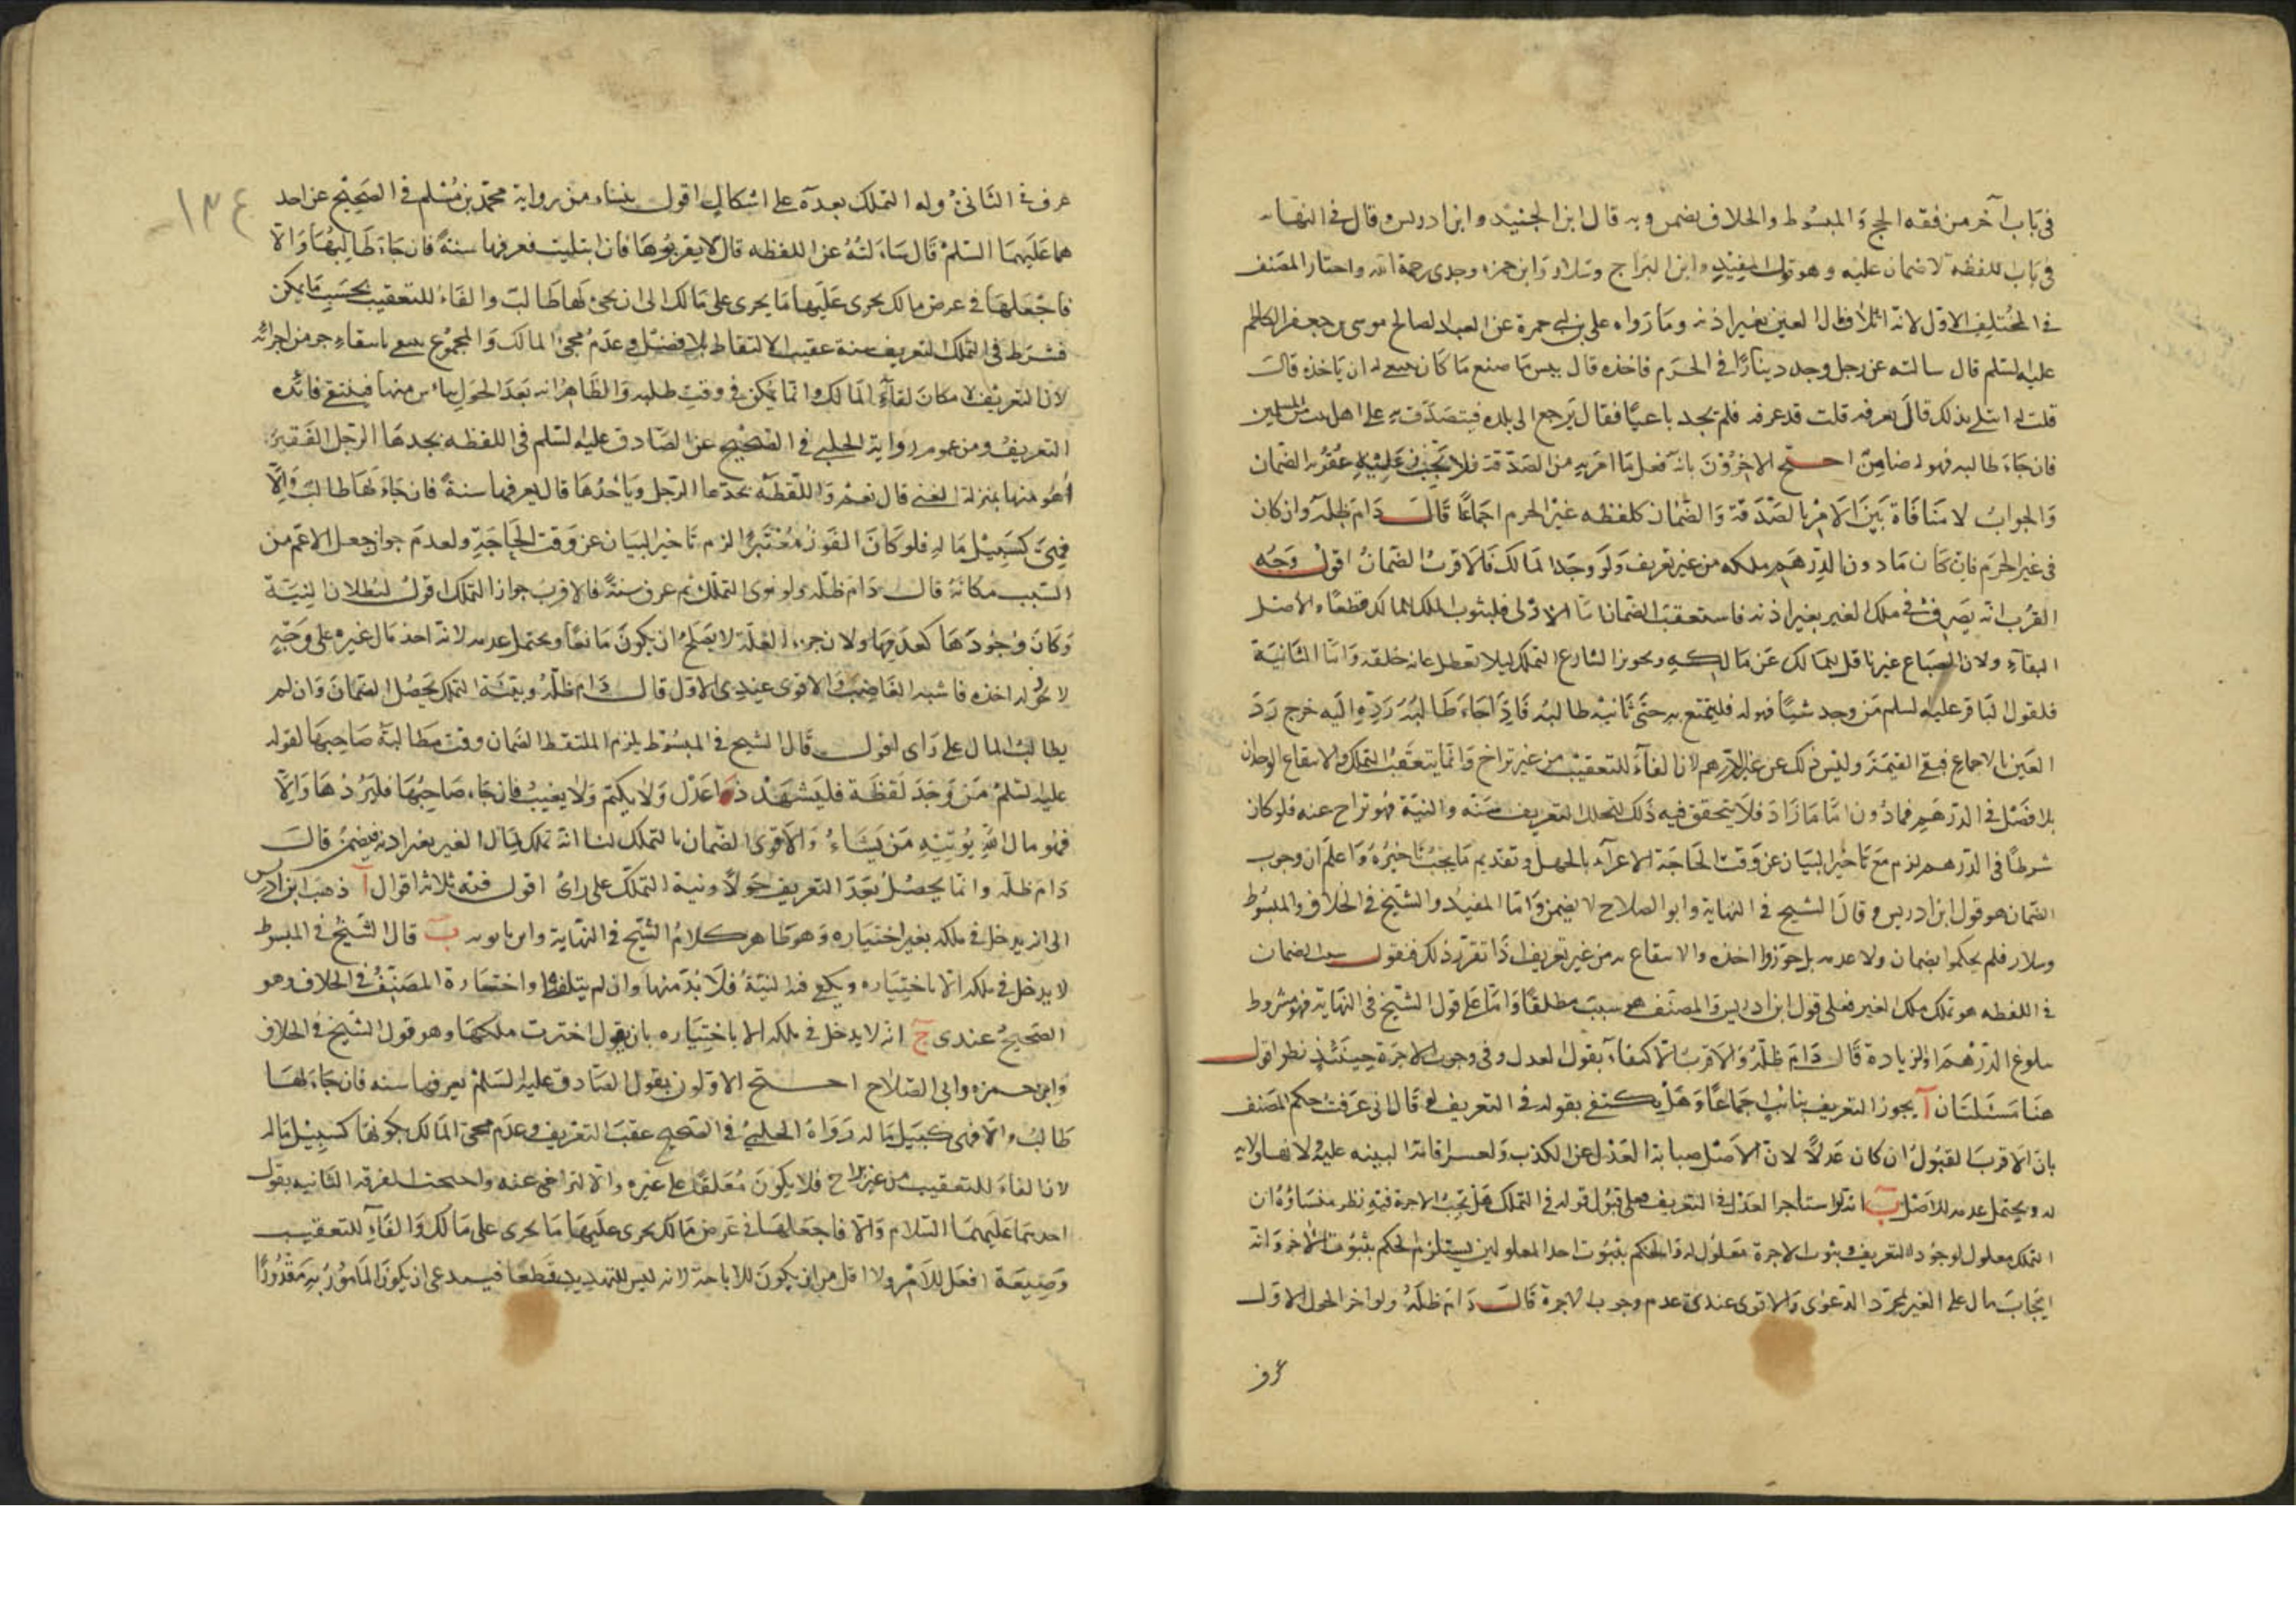 في باب آخر من فقه الحج والمبسوط والخلاف يضمن وبه قال ابن الجنيد وابن ادريس وقال في النهاية
في باب اللقطة لا ضمان عليه وهو قول المفيد وابن البراج وسلار وابن حمزه وجدى رحمه الله واختار المصنف
في المختلف الاول لانه اتلاف مال الغير بغير اذنه وما رواه علي بن ابي حمزة عن العبد الصالح موسى بن جعفر الكاظم
عليه السلم قال سالته عن رجل وجد دينارًا في الحرم فاخذه قال بيس ما صنع ما كان ينبغي له ان ياخذه قالت
قلت له ابتلي بذلك قال يعرفه قلت قد عرفه فلم يجد باغيًا فقال يرجع الى بلده فيتصدق به على اهل بيت من المسلمين
فان جاء طالبه فهو له ضامن احتج الاخرون بانه فعل ما امر به من الصدقة فلا يجب عليه الضمان
والجواب لا منافاة بين الامر بالصدقة والضمان كلقطه غير الحرم اجماعًا قال دام ظله وان كان
في غير الحرم فان كان مادون الدرهم ملكه من غير تعريف ولو وجد المالك فالاقرب الضمان اقول وجه
القرب انه تصرف في ملك الغير بغير اذنه فاستعقب الضمان اما الاولى فلثبوت الملك للمالك قطعًا والاصل
البقاء ولان الضياع غير ناقل للمالك عن مالكه وتجويز الشارع التملك ليلا تعطل غاية خلقه واما الثانية
فلقول الباقر عليه السلم من وجد شيئًا فهو له فليتمتع به حتى ياتيه طالبه فاذا جاء طالبه رده اليه خرج رد
العين بالاجماع فبقي القيمة وليس ذلك عن غير الدرهم لان الفاء للتعقيب من غير تراخ وانما يتعقب التملك والانتفاع الوجدان
بلا فصل في الدرهم فمادون اما ما زاد فلا يتحقق فيه ذلك لتخلل التعريف سنة والنية فهو تراخ عنه فلو كان
شرطًا في الدرهم لزم مع تاخير البيان عن وقت الحاجة الاغراء بالجهل وتقديم ما يجب تاخيره واعلم ان وجوب
الضمان هو قول ابن ادريس وقال الشيخ في النهاية وابو الصلاح لا يضمن واما المفيد والشيخ في الخلاف والمبسوط
وسلار فلم يحكموا بضمان ولا عدمه بل جوزوا اخذه والانتفاع به من غير تعريف اذا تقرر ذلك فنقول سبب الضمان
في اللقطه هو تملك ملك الغير فعلى قول ابن ادريس والمصنف هو سبب مطلقًا واما على قول الشيخ في النهاية فهو مشروط
ببلوغ الدرهم او الزيادة قال دام ظله والاقرب الاكتفاء بقول العدل وفي وجوب الاجرة حينئذ نظر اقول
هنا مسئلتان آ يجوز التعريف بنائب اجماعًا وهل يكتفي بقوله في التعريف لو قال اني عرفت حكم المصنف
بان الاقرب القبول ان كان عدلًا لان الاصل صيانة العدل عن الكذب ولعسر اقامة البينه عليه
له ويحتمل عدمه للاصل ب انه لو استاجر العدل في التعريف فعلى قبول قوله في التملك هل تجب الاجرة فيه نظر منشاؤه ان
التملك معلول لوجود التعريف وثبوت الاجرة معلول له والحكم بثبوت احد المعلولين يستلزم الحكم بثبوت الاخر وانه
ايجاب مال على الغير لمجرد الدعوى والاقوى عندي عدم وجوب الاجرة قال دام ظله ولو اخر الحول الاول
عرف
١٣٤
عرف في الثاني وله التملك بعده على اشكال اقول ينشاء من رواية محمد بن مسلم في الصحيح عن احد
هما عليهما السلم قال سالته عن اللقطه قال لا يقربوها فان ابتليت فعرفها سنة فان جاء طالبها والا
فاجعلها في عرض مالك يجرى عليها ما يجرى على مالك الى ان يجئ لها طالب والفاء للتعقيب بحسب ما يمكن
فشرط في التملك التعريف سنة عقيب الالتقاط بلا فصل وعدم مجئ المالك والمجموع ينتفي بانتفاء جزء من اجزائه
لان التعريف لامكان لقاء المالك وانما يمكن في وقت طلبه والظاهر انه بعد الحول يياس منها فينتفي فائده
التعريف ومن عموم رواية الحلبي في الصحيح عن الصادق عليه السلم في اللقطه يجدها الرجل الفقير
أهو منها بمنزلة الغني قال نعم واللقطة يجدها الرجل وياخذها قال يعرفها سنة فان جاء لها طالب والا
فهي كسبيل ماله فلو كان الفور معتبرًا لزم تاخير البيان عن وقت الحاجة ولعدم جواز جعل الاعم من
السبب مكانه قال دام ظله ولو نوى التملك ثم عرف سنة فالاقرب جواز التملك اقول لبطلان النية
وكان وجودها كعدمها ولان جزء العلة لا يصلح ان يكون مانعًا ويحتمل عدمه لانه اخذ مال غيره على وجه
لا يجوز له اخذه فاشبه الغاصب والاقوى عندي الاول قال دام ظله وبنية التملك يحصل الضمان وان لم
يطالب المال على راى اقول قال الشيخ في المبسوط يلزم الملتقط الضمان وقت مطالبة صاحبها لقوله
عليه السلم من وجد لقطة فليشهد ذوا عدل ولا يكتم ولا يغيب فان جاء صاحبها فليردها والا
فهو مال الله يؤتيه من يشاء والاقوى الضمان بالتملك لنا انه تملك لمال الغير بغير اذنه فيضمن قال
دام ظله وانما يحصل بعد التعريف حولًا ونية التملك على راى اقول فيه ثلاثة اقوال آ ذهب ابن ادريس
الى انه يدخل في ملكه بغير اختياره وهو ظاهر كلام الشيخ في النهاية وابن بابويه ب قال الشيخ في المبسوط
لا يدخل في ملكه الا باختياره ويكفي فيه النية فلا بد منها وان لم يتلفظ واختاره المصنف في الخلاف وهو
الصحيح عندي ج انه لا يدخل في ملكه الا باختياره بان يقول اخترت ملكها وهو قول الشيخ في الخلاف
وابن حمزه وابي الصلاح احتج الاولون بقول الصادق عليه السلم يعرفها سنه فان جاء لها
طالب والا فهي كسبيل ماله رواه الحلبي في الصحيح عقب التعريف وعدم مجئ المالك بكونها كسبيل ماله
لان الفاء للتعقيب من غير تراخ فلا يكون معلقًا على غيره والا لتراخى عنه واحتجت الفرقه الثانيه بقول
احدهما عليهما السلام والا فاجعلها في عرض مالك يجرى عليها ما يجرى على مالك والفاء للتعقيب
وصيغة افعل للامر ولا اقل من ان يكون للاباحة لانه ليس للتهديد قطعًا فيستدعى ان يكون المامور به مقدورًا